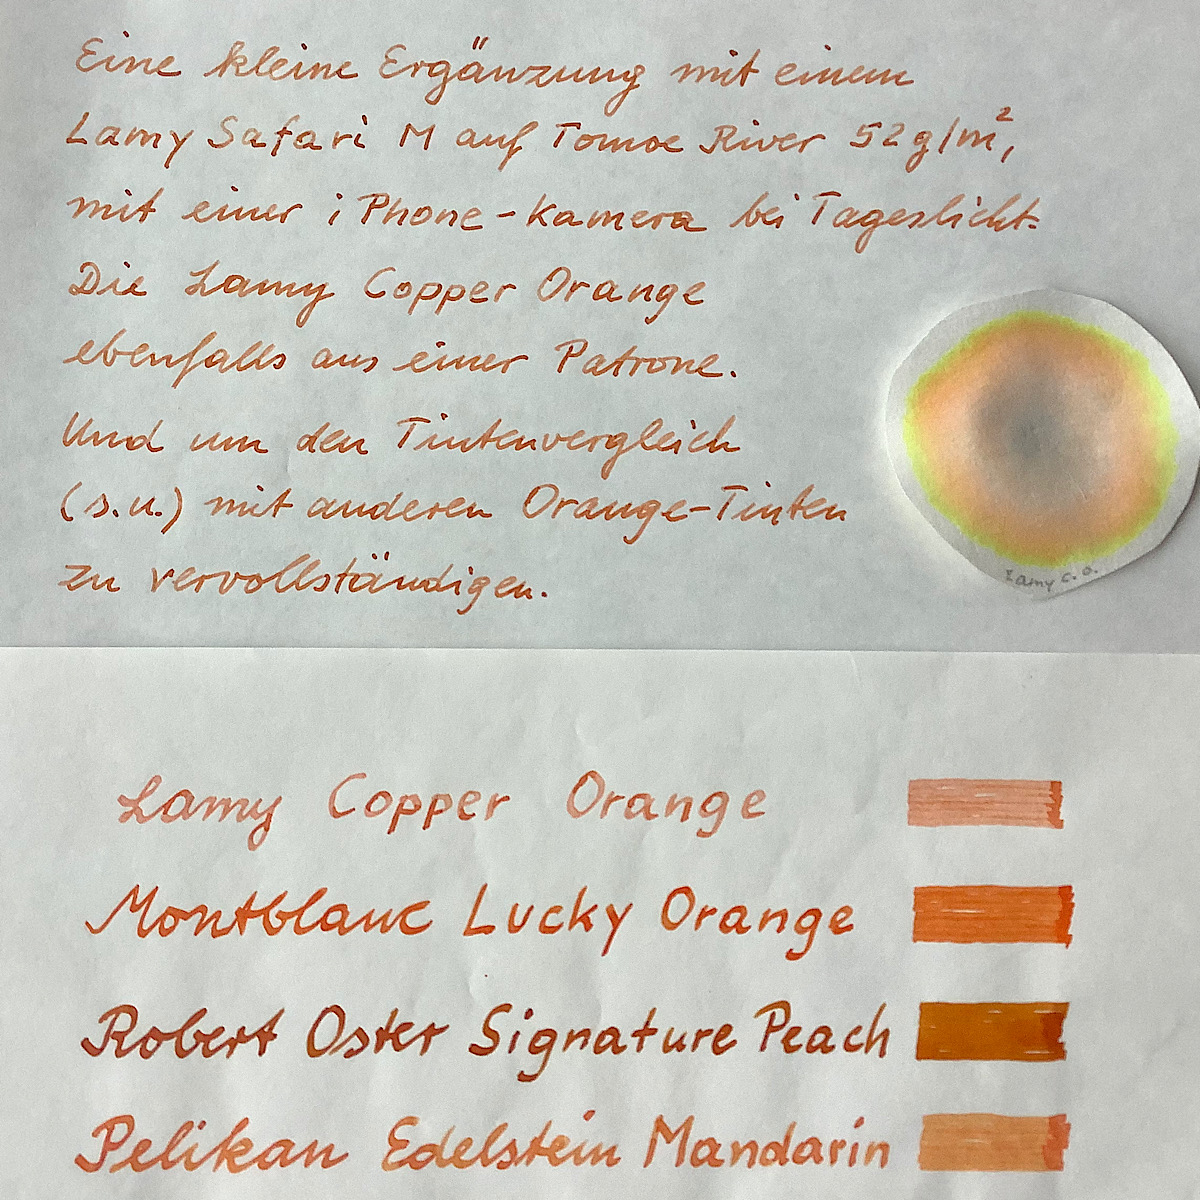 Eine kleine Ergänzung mit einem
Lamy Safari M auf Tomoe River 52 g/m²,
mit einer iPhone-Kamera bei Tageslicht.
Die Lamy Copper Orange
ebenfalls aus einer Patrone.
Und um den Tintenvergleich
(s.u.) mit anderen Orange-Tinten
zu vervollständigen.
Lamy C.O.
Lamy Copper Orange
Montblanc Lucky Orange
Robert Oster Signature Peach
Pelikan Edelstein Mandarin